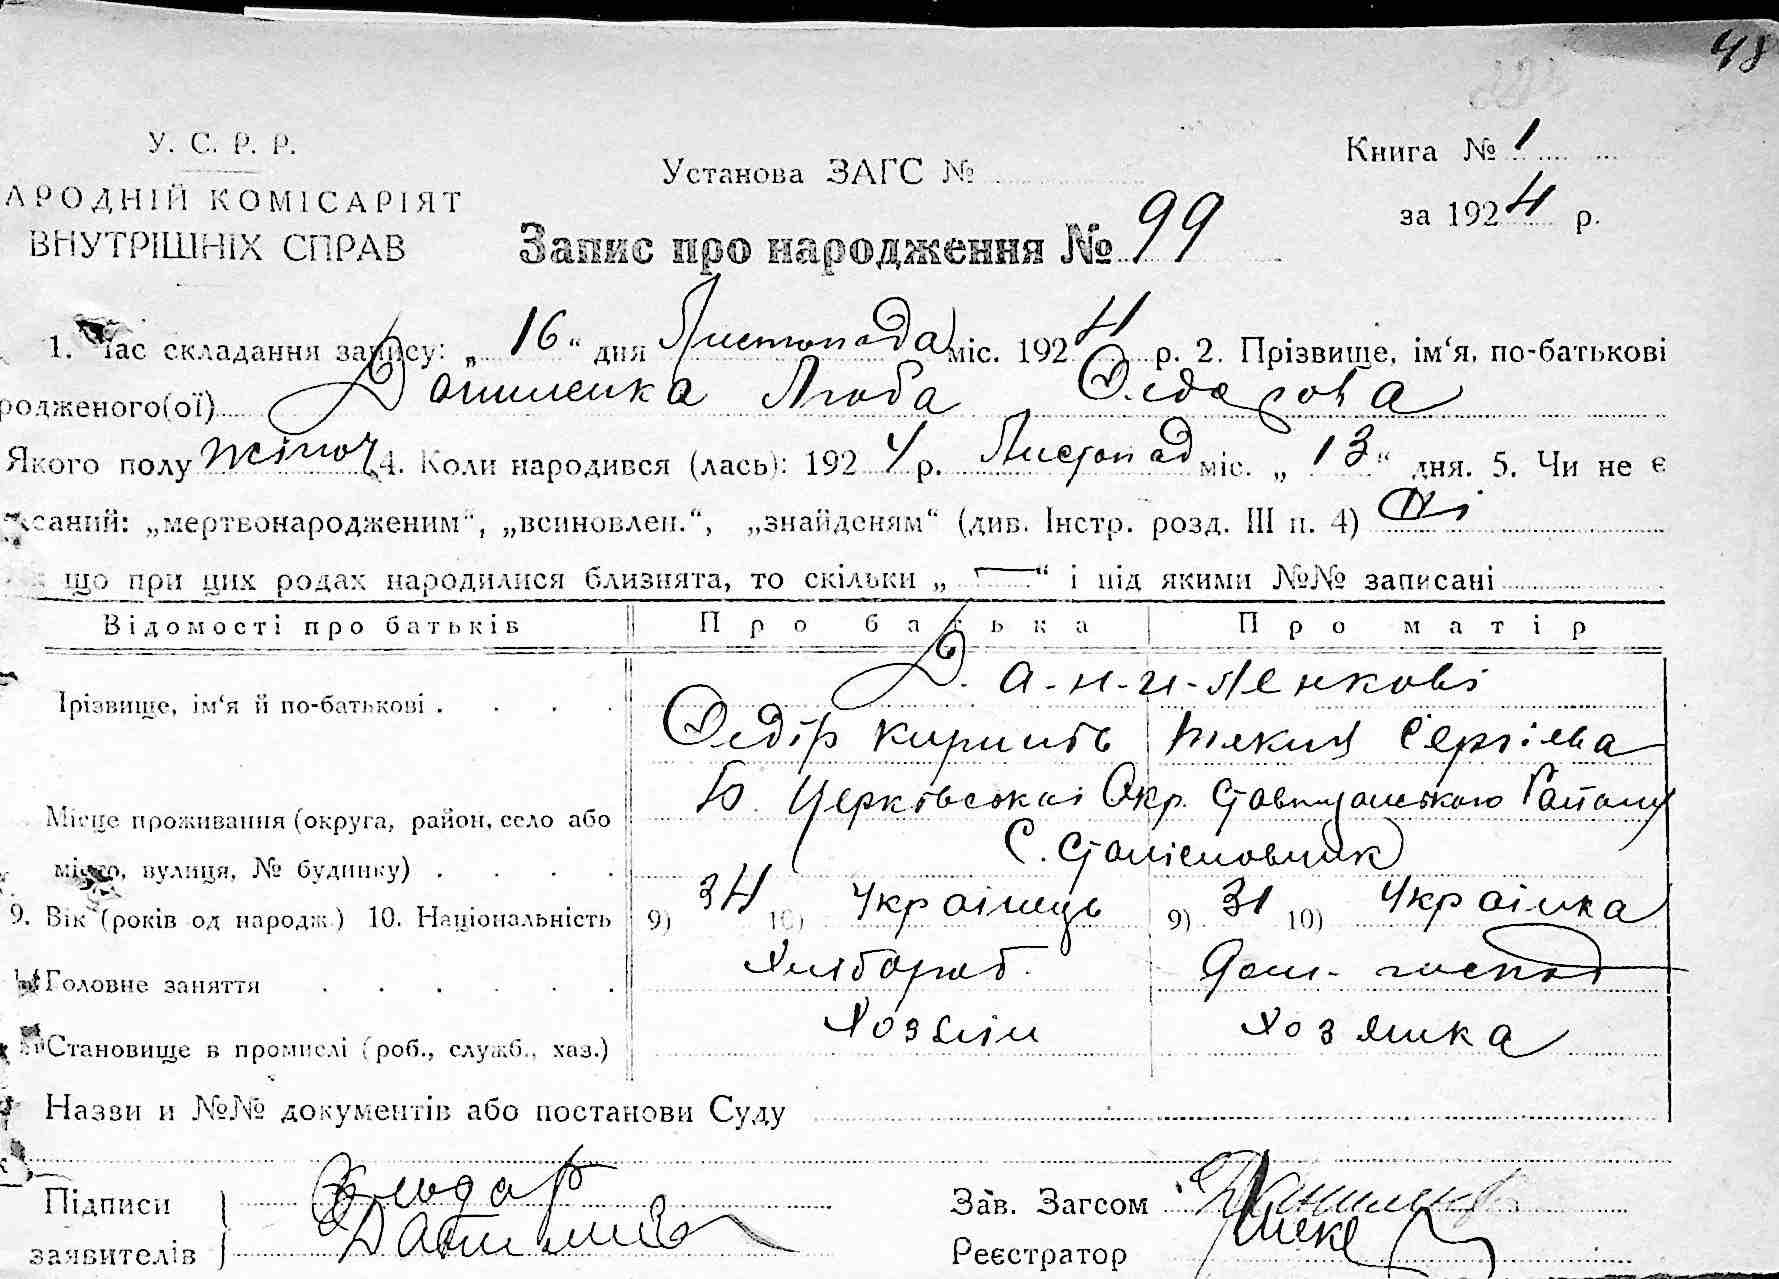 48
У. С. Р. Р.
АРОДНІЙ КОМІСАРІЯТ
ВНУТРІШНІХ СПРАВ
Установа ЗАГС №
Книга № 1
за 1924 р.
Запис про народження № 99
1. Час складання запису: „ 16 “ дня Листопада міс. 1924 р. 2. Прізвище, ім‘я, по-батькові
родженого(ої) Даниленка Люба Федорова
Якого полу жіноч 4. Коли народився (лась): 1924 р. Листопад міс. „ 13 “ дня. 5. Чи не є
саний: „мертвонародженим“, „всиновлен.“, „знайденям“ (див. Інстр. розд. III п. 4) Ні
що при цих родах народилися близнята, то скільки „ — “ і під якими №№ записані
Відомості про батьків Про батька Про матір
Прізвище, ім‘я й по-батькові . . . . Д.а-н-и-ленкові
Федір Сергієва
Місце проживання (округа, район, село або Б. Церківської Окр. Ставищанського Району
місто, вулиця, № будинку) . . . . С.
9. Вік (років од народж.) 10. Національність 9) 34 10) Українець 9) 31 10) Українка
Головне заняття . . . . . . Хлібороб. Дом. господ
Становище в промислі (роб., служб., хаз.) Хозяїн Хозяйка
Назви и №№ документів або постанови Суду
Підписи
заявителів
Зав. Загсом
Реєстратор